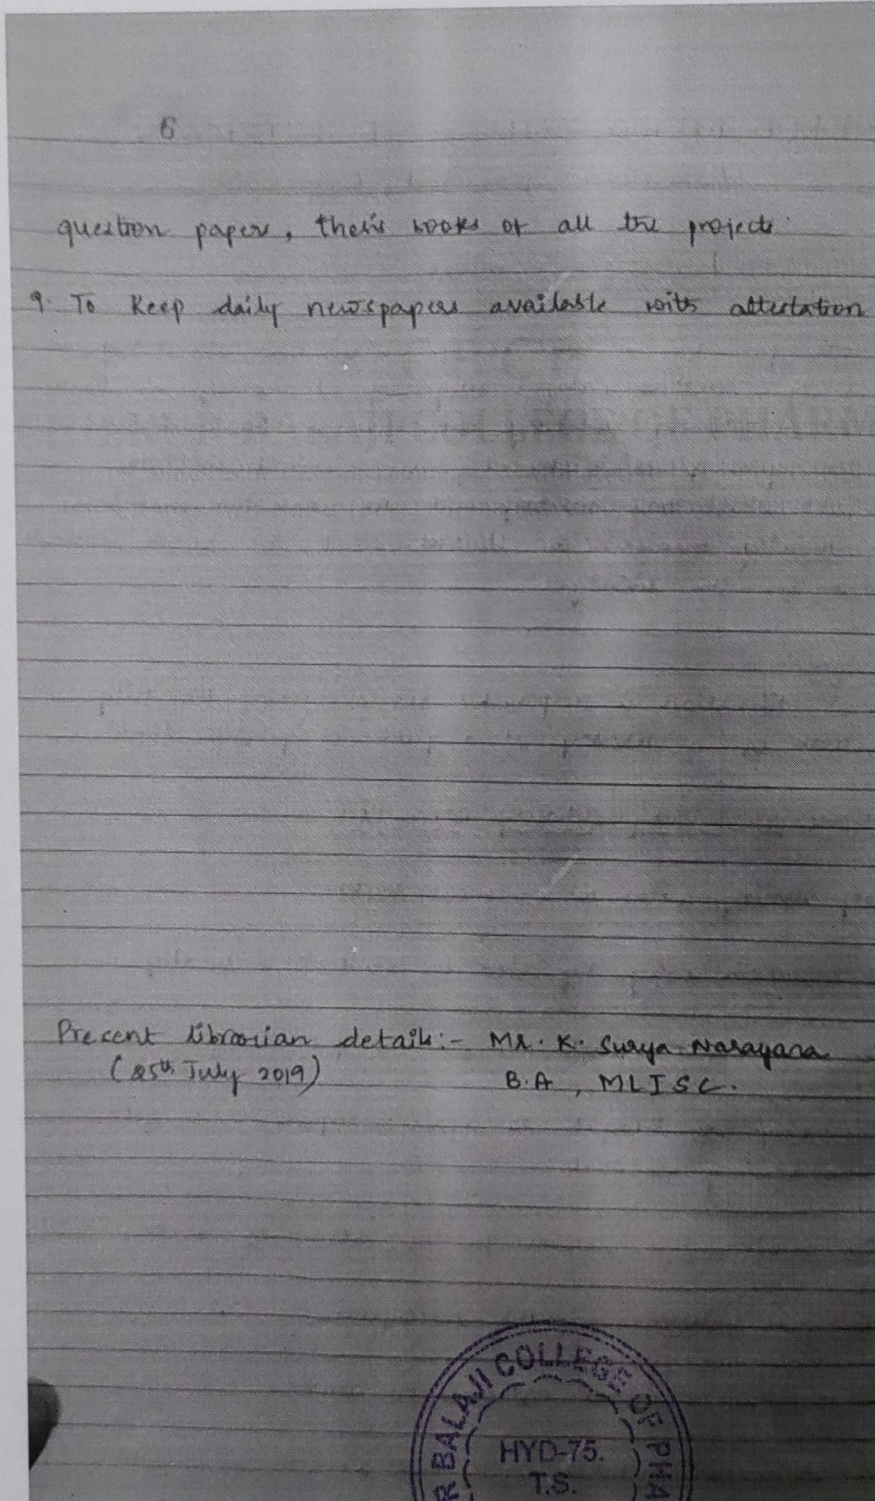 6
question papers, thesis books of all the projects.
9. To Keep daily newspapers available with attestation
Present librarian details:- Mr. K. Surya Narayana
(25th July 2019) B.A, MLISC.
R BALAJI COLLEGE OF PHA
HYD-75.
T.S.